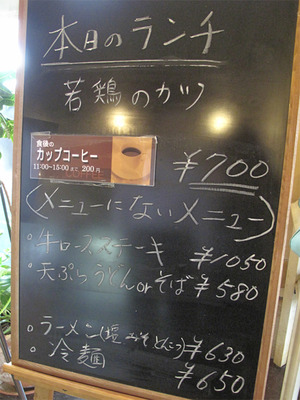 本日のランチ
若鶏のカツ
食後の
カップコーヒー
11:00~15:00まで 200円
¥700
(メニューにないメニュー)
。牛ロースステーキ ¥1050
。天ぷらうどんorそば ¥580
。ラーメン(塩 みそ とんこつ) ¥630
。冷麺 ¥650